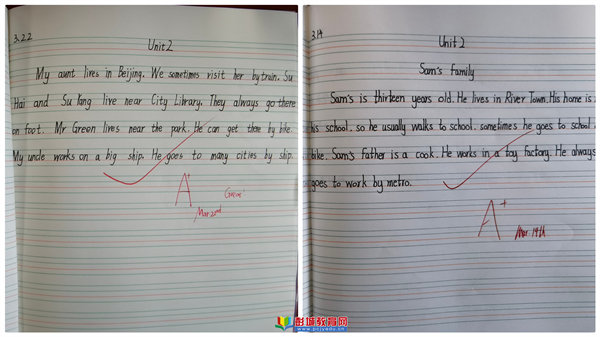 3.22
Unit 2
My aunt lives in Beijing. We sometimes visit her by train. Su
Hai and Su Yang live near City Library. They always go there
on foot. Mr Green lives near the park. He can get there by bike.
My uncle works on a big ship. He goes to many cities by ship.
A+
Mar.22nd
3.14
Unit 2
Sam's family
Sam's is thirteen years old. He lives in River Town. His home is
his school. so he usually walks to school. sometimes he goes to school
bike. Sam's father is a cook. He works in a toy factory. He always
goes to work by metro.
A+
Mar.14th
彭城教育网
www.pcjyedu.cn